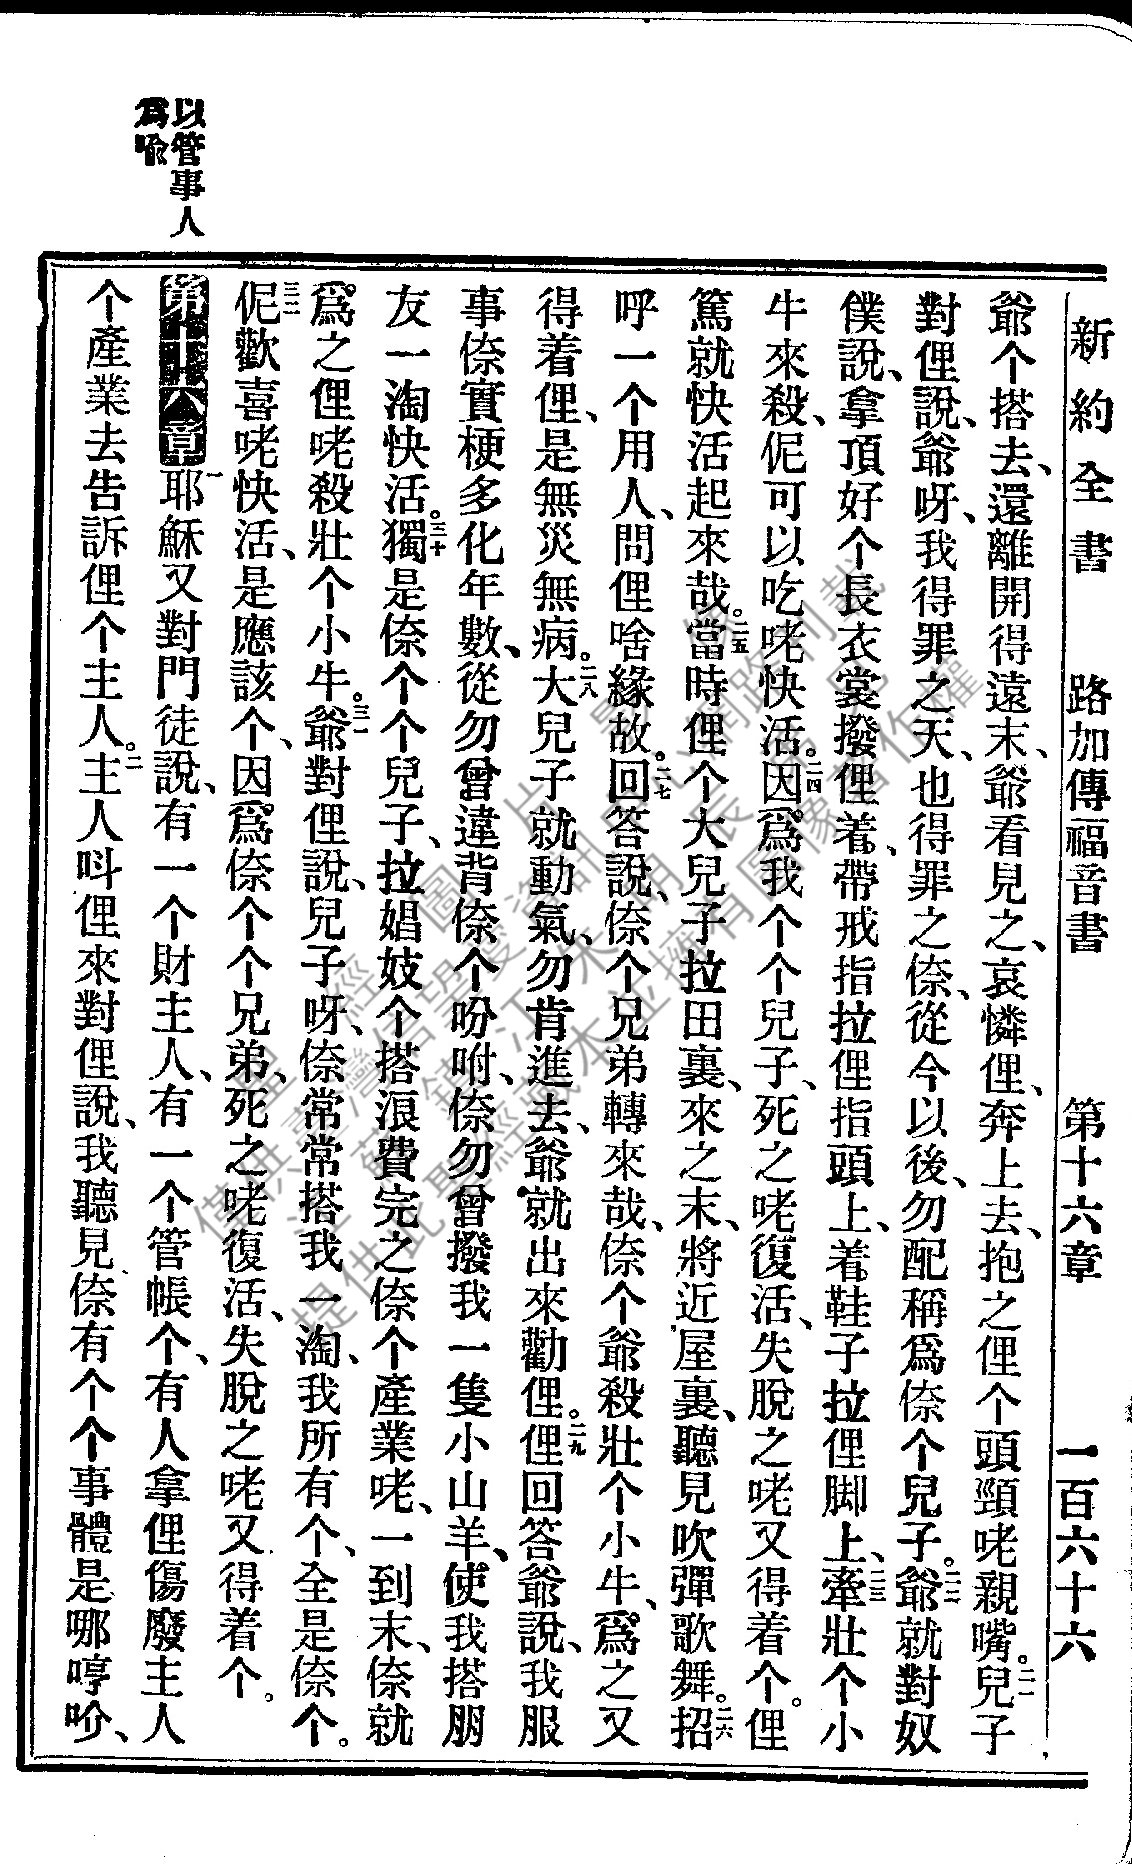 新約全書　路加傳福音書　第十六章　一百六十六
爺个搭去、還離開得遠末、爺看見之、哀憐俚、奔上去、抱之俚个頭頸咾親嘴。二一兒子
對俚說、爺呀、我得罪之天、也得罪之倷、從今以後、勿配稱爲倷个兒子。二二爺就對奴
僕說、拿頂好个長衣裳撥俚着、帶戒指拉俚指頭上、着鞋子拉俚脚上、二三牽壯个小
牛來殺、伲可以吃咾快活。二四因爲我个个兒子、死之咾復活、失脫之咾又得着个。俚
篤就快活起來哉。二五當時俚个大兒子拉田裏、來之末、將近屋裏、聽見吹彈歌舞。二六招
呼一个用人、問俚啥緣故。二七回答說、倷个兄弟轉來哉、倷个爺殺壯个小牛、爲之又
得着俚、是無災無病。二八大兒子就動氣、勿肯進去、爺就出來勸俚。二九俚回答爺說、我服
事倷實梗多化年數、從勿曾違背倷个吩咐、倷勿曾撥我一隻小山羊、使我搭朋
友一淘快活。三十獨是倷个个兒子、拉娼妓个搭浪費完之倷个產業咾、一到末、倷就
爲之俚咾殺壯个小牛。三一爺對俚說、兒子呀、倷常常搭我一淘、我所有个、全是倷个。
三二伲歡喜咾快活、是應該个、因爲倷个个兄弟、死之咾復活、失脫之咾又得着个。
第十六章　一耶穌又對門徒說、有一个財主人、有一个管帳个、有人拿俚傷廢主人
个產業去告訴俚个主人。二主人呌俚來對俚說、我聽見倷有个个事體是哪哼吤、
以管事人
爲喻